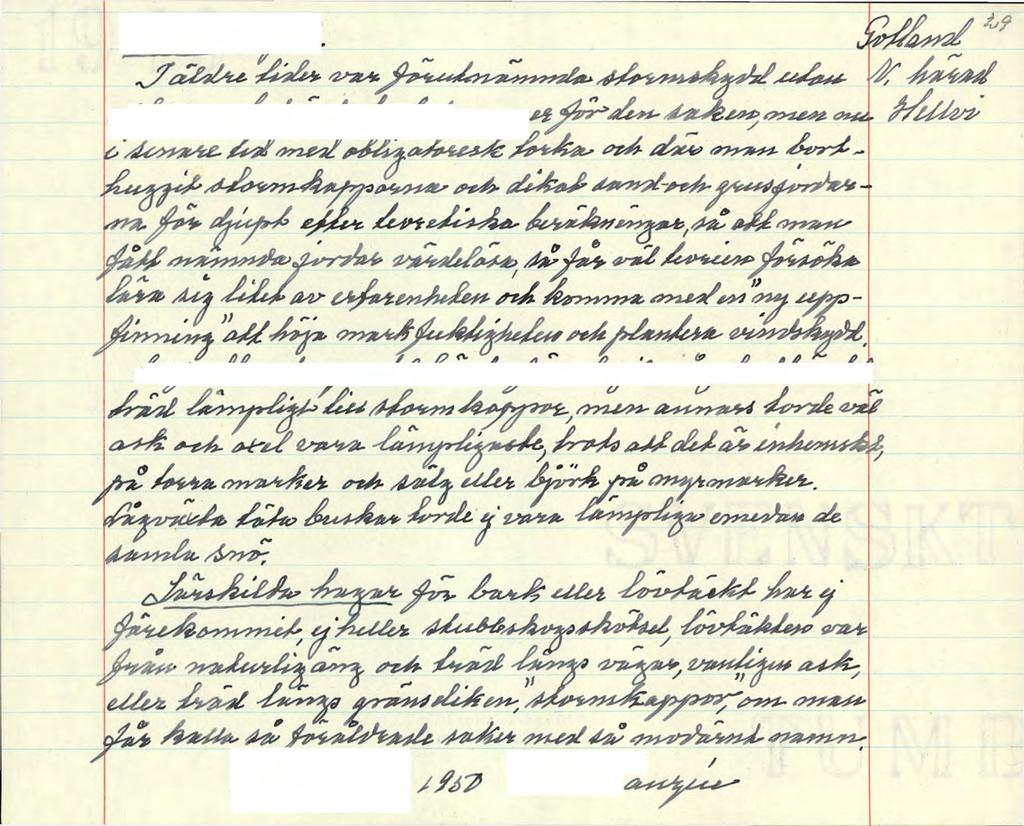 Gotland 29
I äldre tider var förutnämnda stormskydd utan N. härad
för den saken, men nu Hellvi
i senare tid med obligatoresk torka och där man bort-
huggit stormkapporna och dikat sand-och grusjordar-
na för djupt efter teoretiska beräkningar, så att man
fått nämnda jordar värdelösa, så får väl teorien försöka
lära sig litet av erfarenheten och komma med en "ny upp-
finning" att höja markfuktigheten och plantera vindskydd.
träd lämpligt till stormkappor, men annars torde väl
ask och oxel vara lämpligaste, trots att det är inhemskt,
på torra marker och sälg eller björk på myrmarker.
Lågväxta täta buskar torde ej vara lämpliga emedan de
samla snö.
Särskilda hagar för bark eller lövtäckt har ej
förekommit, ej heller stubbskogsskötsel, lövtäkten var
från naturlig äng och träd längs vägar, vanligen ask,
eller träd längs gränsdiken, "stormkappor", om man
får kalla så föråldrade saker med så modärnt namn.
1950
SVENSKT